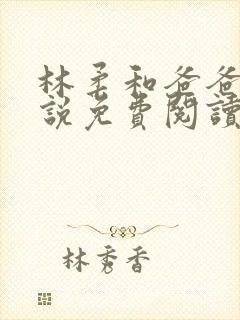 林柔和爸爸
説免費閱讀
林秀香